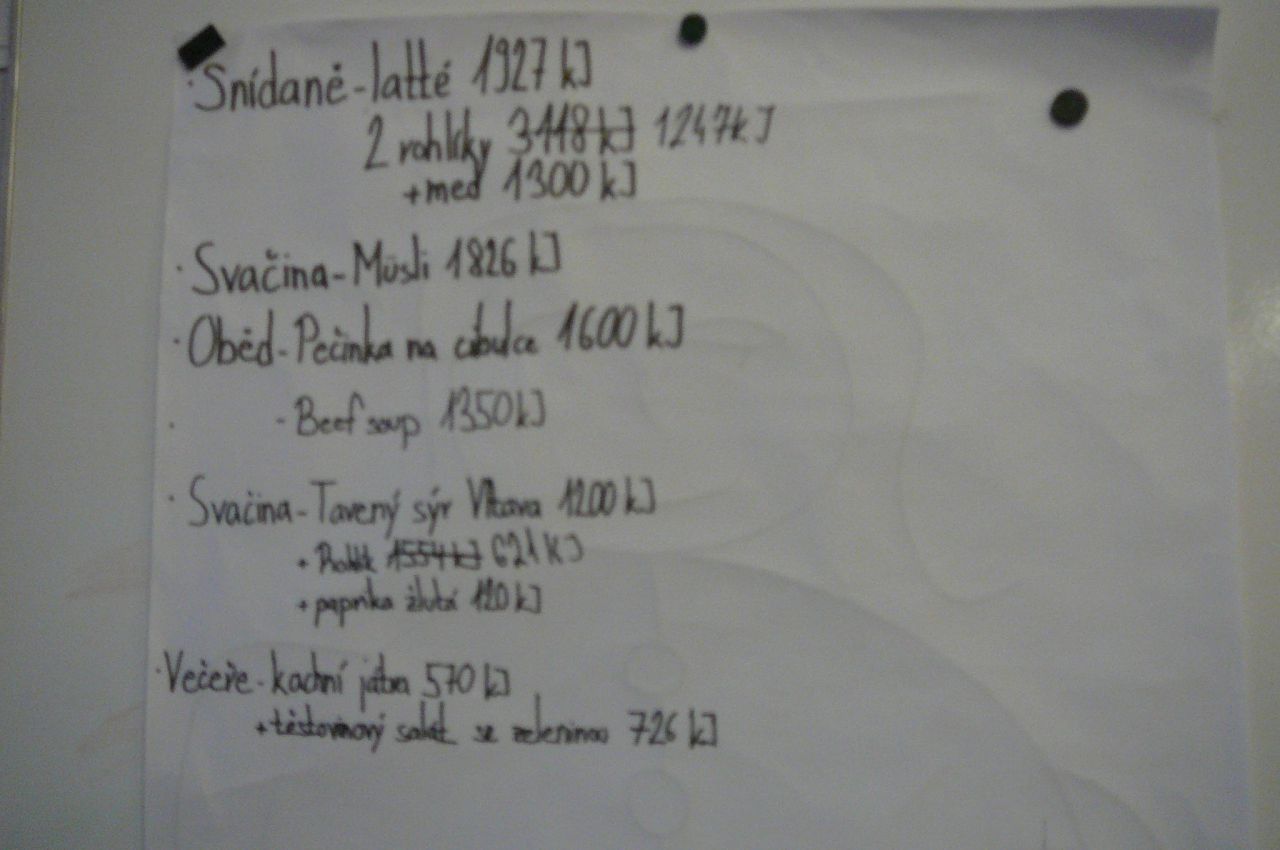 · Snídaně - latté 1927 kJ
2 rohlíky 3118 kJ 1247kJ
+ med 1300 kJ
· Svačina - Müsli 1826 kJ
· Oběd - Pečínka na cibulce 1600 kJ
· - Beef soup 1350 kJ
· Svačina - Tavený sýr Vltava 1200 kJ
+ Rohlík 1554 kJ 621 KJ
+ paprika žlutá 120 kJ
· Večeře - kachní játra 570 kJ
+ těstovinový salát se zeleninou 726 kJ